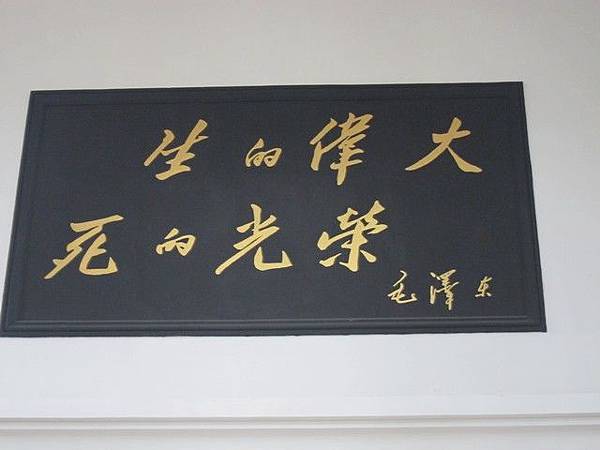 生的偉大
死的光榮
毛澤东